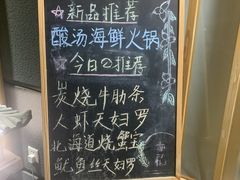 ☆新品推荐
酸汤海鲜火锅
☆今日の推荐
炭烧牛肋条
大虾天妇罗
北海道烧蟹宝
鱿鱼丝天妇罗